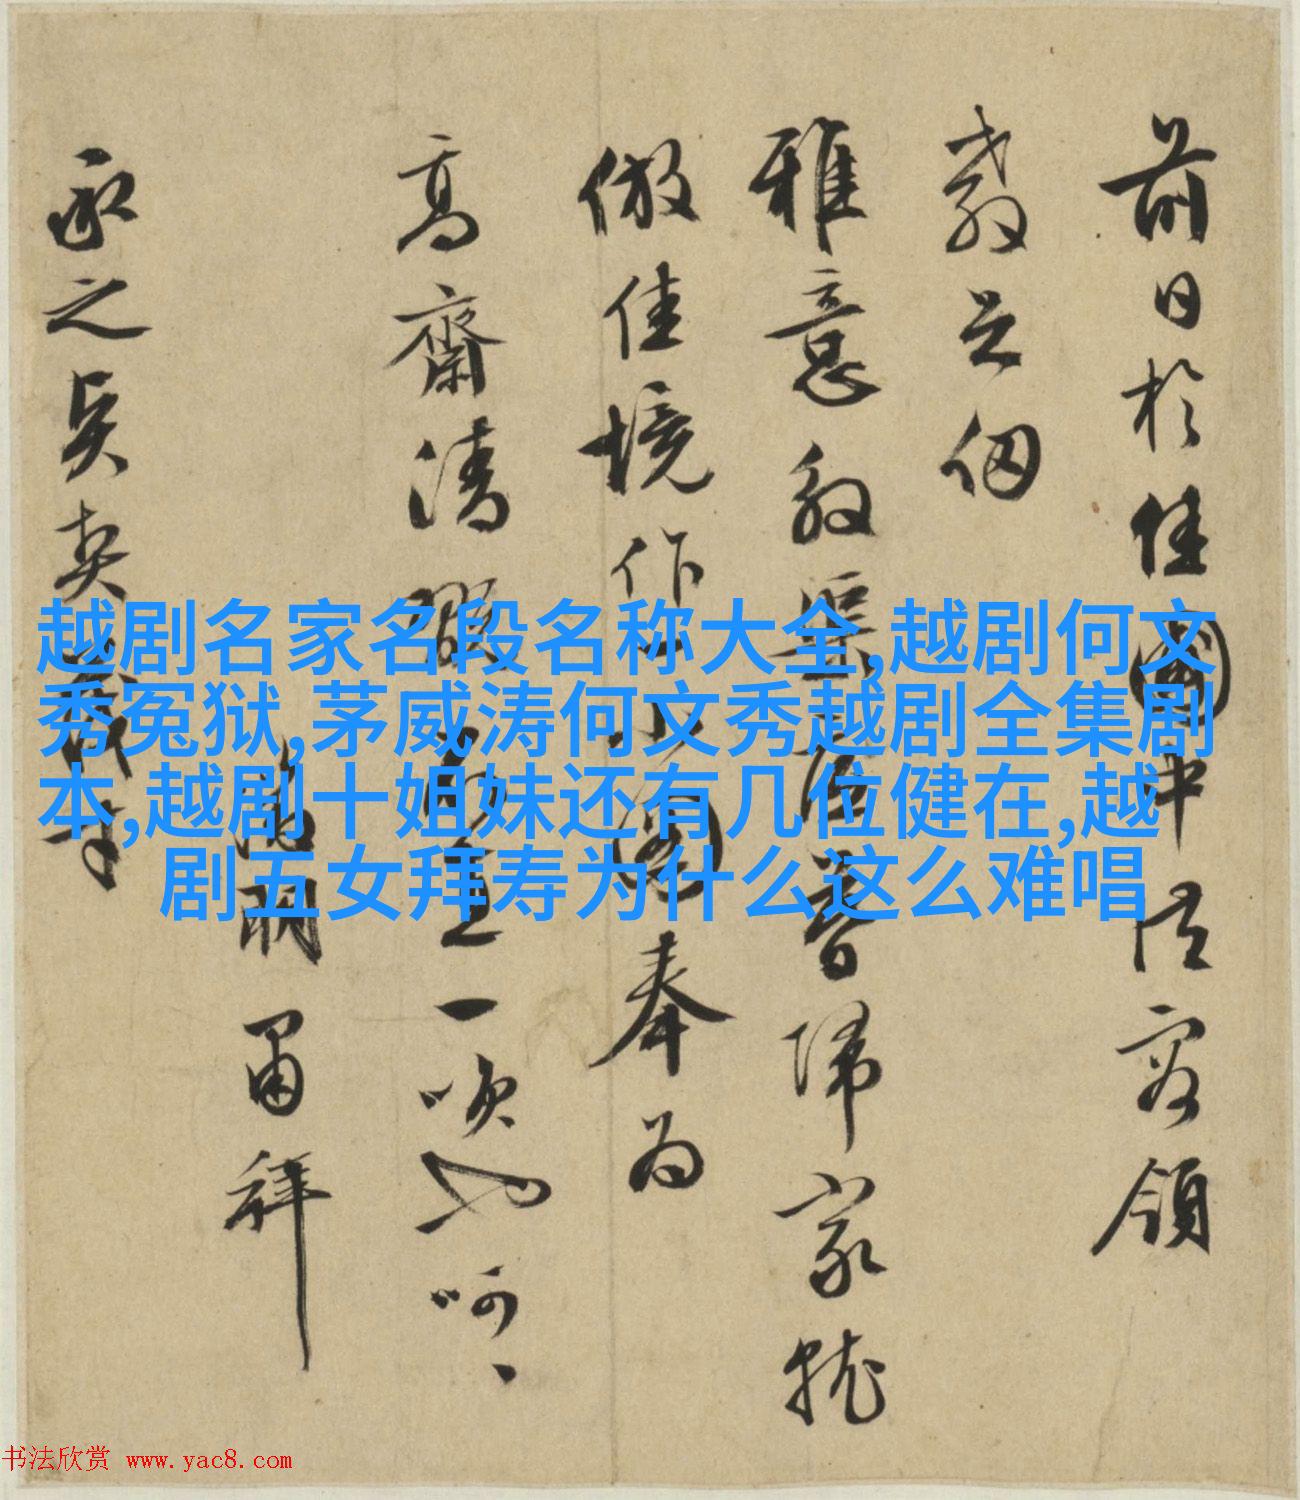 前日於佳園中領
教足仞
雅意殷渠歸家就
倣佳境作小圖奉為
高齋清一咲也呵、
朋甫祥
承之吳英茂才
越剧名家名段名称大全,越剧何文
秀冤狱,茅威涛何文秀越剧全集剧
本,越剧十姐妹还有几位健在,越
剧五女拜寿为什么这么难唱
书法欣赏 www.yac8.com